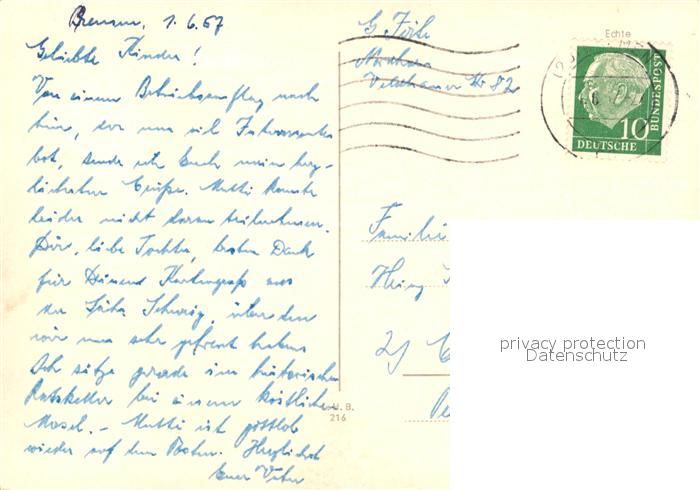 Bremen, 1.6.57
Geliebte Kinder!
Von einem Betriebsausflug nach
hier, der uns viel Interessantes
bot, sende ich Euch meine herz-
lichsten Grüße. Mutti konnte
leider nicht daran teilnehmen.
Dir, liebe Tochter, besten Dank
für Deinen Kartengruß aus
der Schweiz, über den
wir uns sehr gefreut haben.
Ich sitze gerade im historischen
Ratskeller bei einem köstlichen
Mosel. - Mutti ist gottlob
wieder auf dem Posten. Herzlichst
Euer Vater
G.
82
Echte
10
DEUTSCHE
BUNDESPOST
Familie
Heinz
privacy protection
Datenschutz
U. B.
216